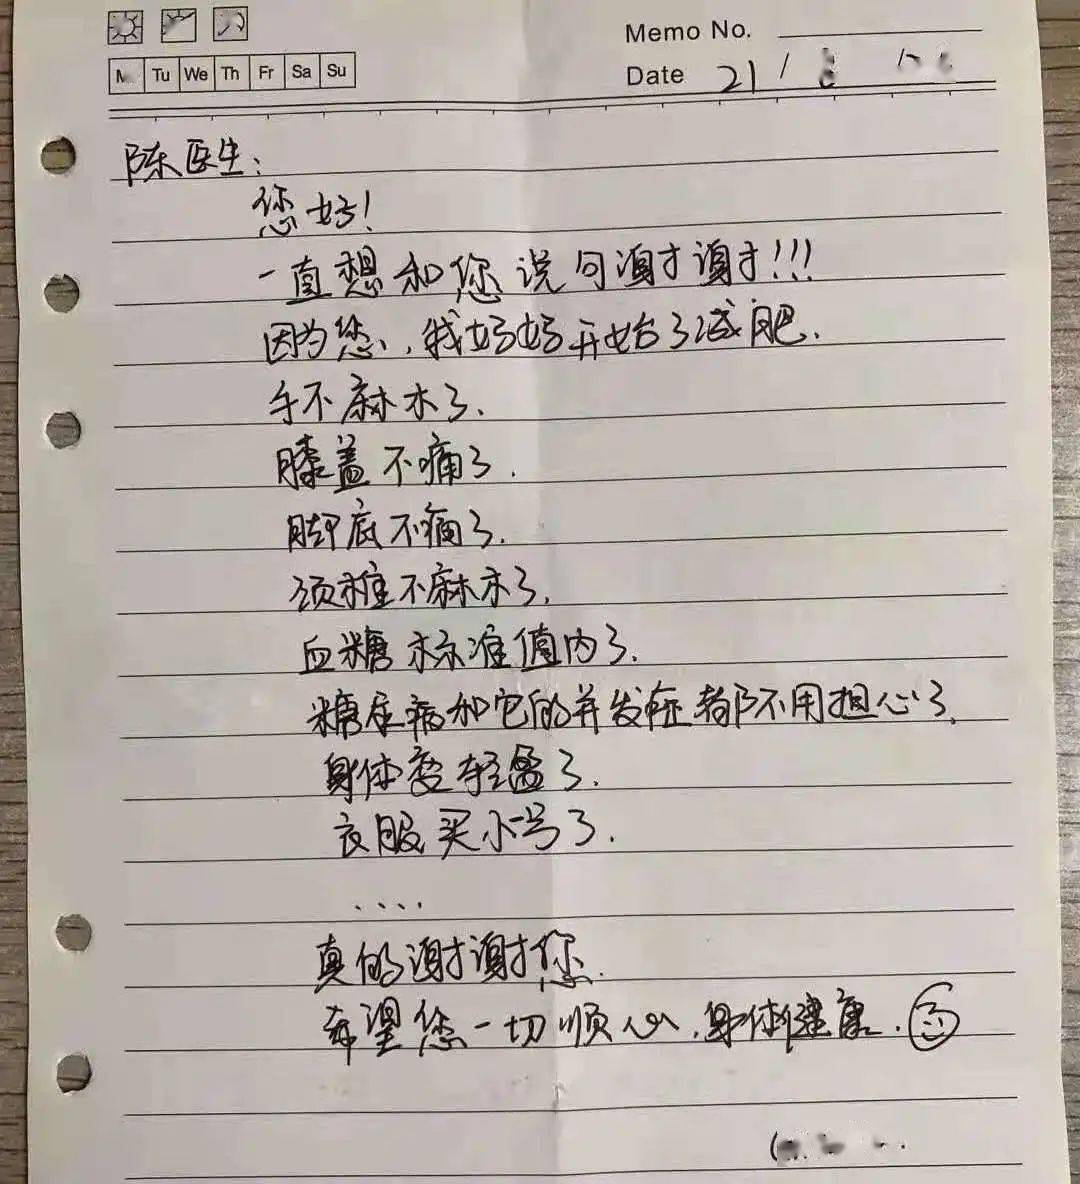 Memo No.
Tu We Th Fr Sa Su
Date 21 /
陈医生:
您好!
一直想和您说句谢谢!!!
因为您,我好好开始了减肥.
手不麻木了.
膝盖不痛了.
脚底不痛了.
颈椎不麻木了.
血糖标准值内了.
糖尿病和它的并发症都不用担心了.
身体变轻盈了.
衣服买小号了.
....
真的谢谢您.
希望您一切顺心,身体健康.